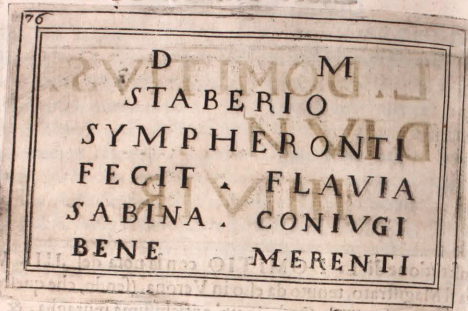 76
D M
STABERIO
SYMPHERONTI
FECIT . FLAVIA
SABINA . CONIVGI
BENE MERENTI